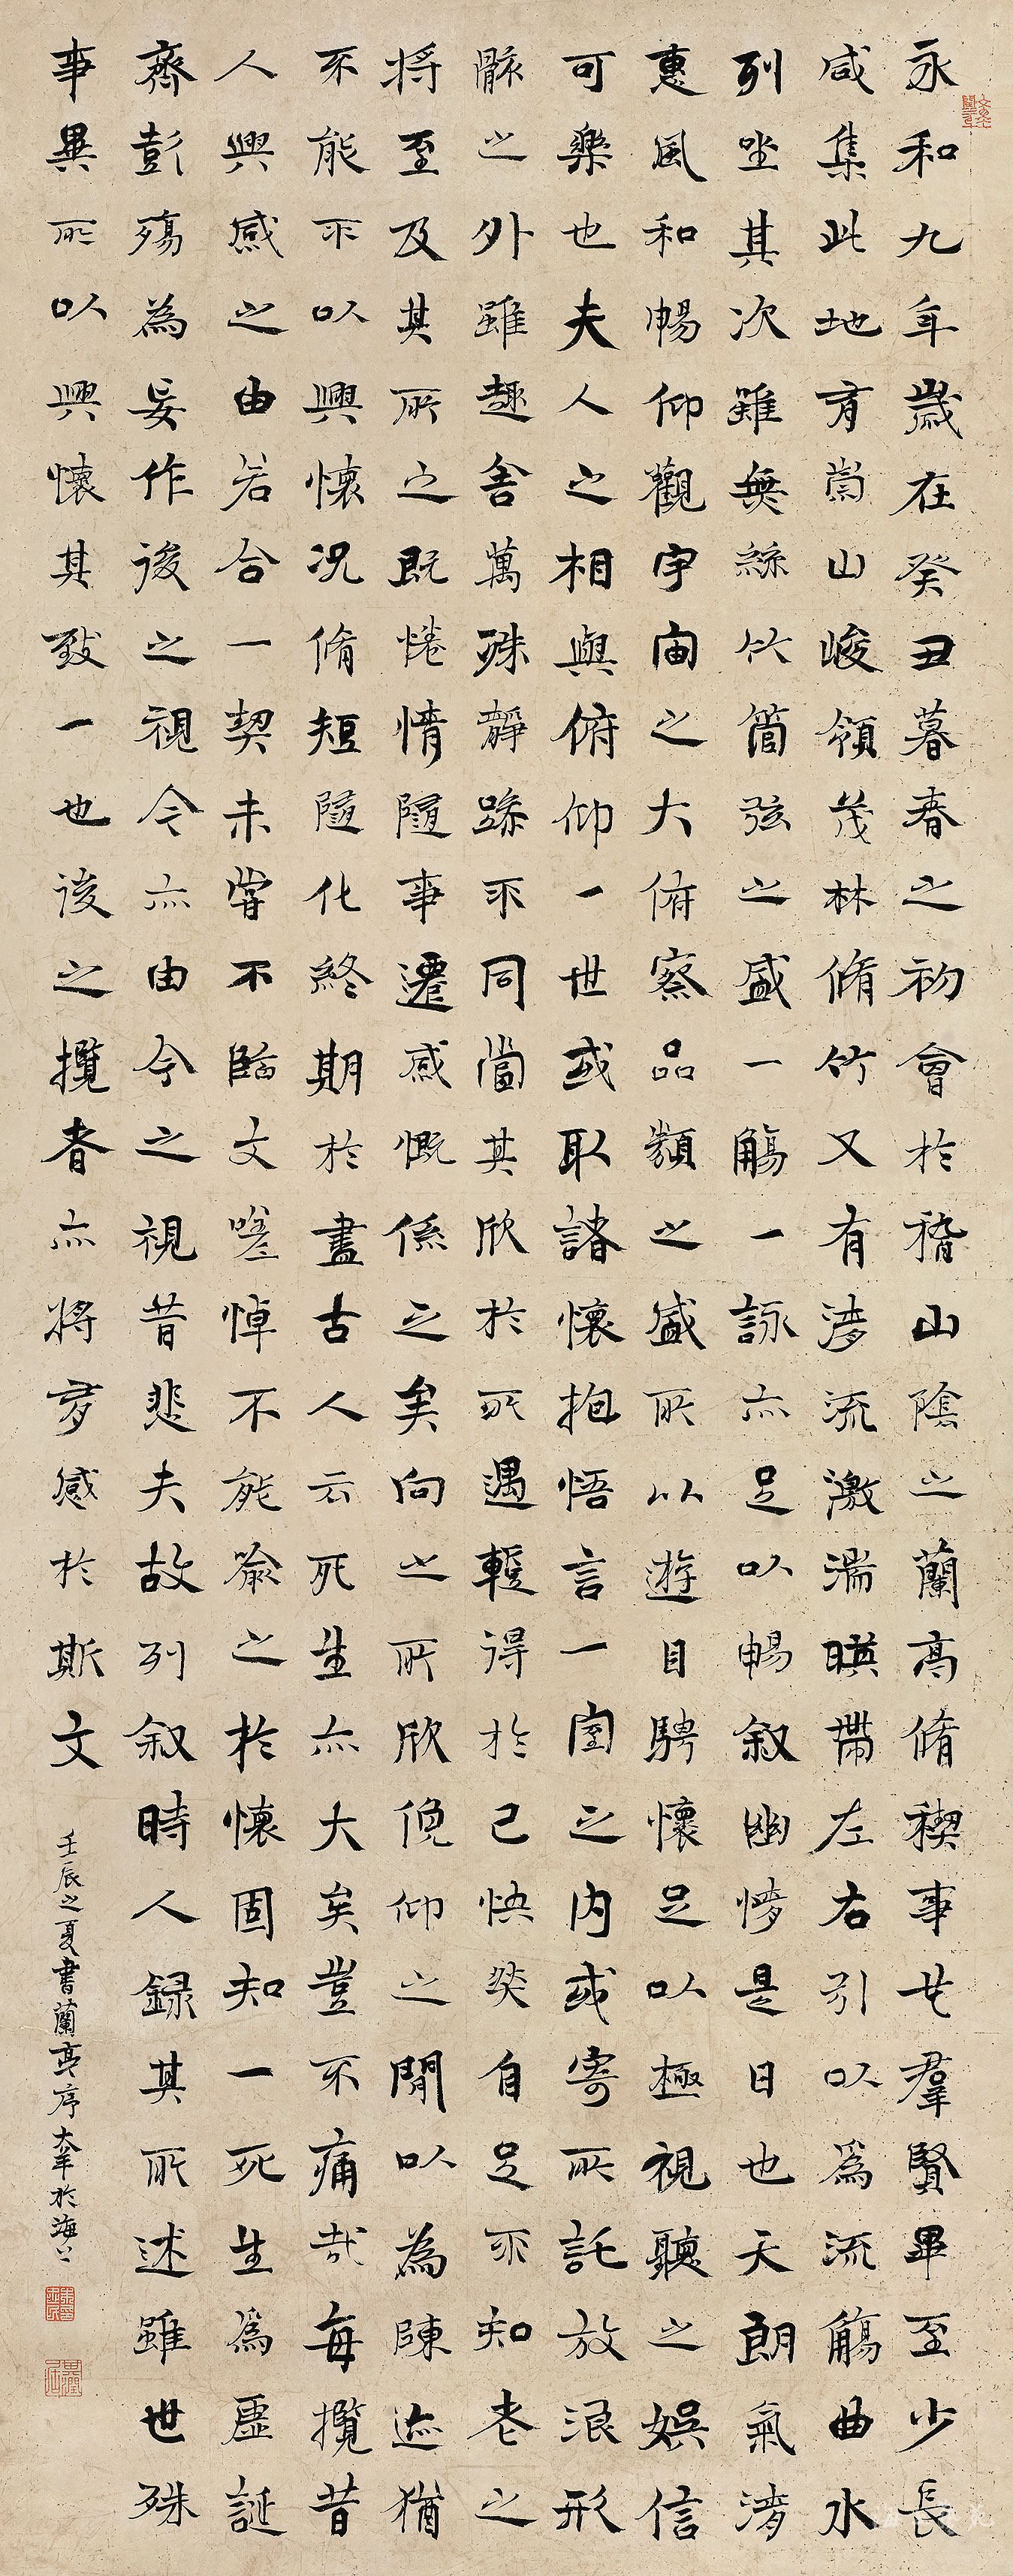 永和九年歲在癸丑暮春之初會於稽山陰之蘭亭脩稧事也羣賢畢至少長
咸集此地有崇山峻領茂林脩竹又有清流激湍暎帶左右引以為流觴曲水
列坐其次雖無絲竹管弦之盛一觴一詠亦足以暢叙幽情是日也天朗氣清
惠風和暢仰觀宇宙之大俯察品類之盛所以遊目騁懷足以極視聽之娛信
可樂也夫人之相與俯仰一世或取諸懷抱悟言一室之內或寄所託放浪形
骸之外雖趣舍萬殊靜躁不同當其欣於所遇蹔得於己快然自足不知老之
將至及其所之既惓情隨事遷感慨係之矣向之所欣俛仰之閒以為陳迹猶
不能不以興懷況脩短隨化終期於盡古人云死生亦大矣豈不痛哉每攬昔
人興感之由若合一契未嘗不臨文嗟悼不能喻之於懷固知一死生為虛誕
齊彭殤為妄作後之視今亦由今之視昔悲夫故列叙時人録其所述雖世殊
事異所以興懷其致一也後之攬者亦將有感於斯文
壬辰之夏書蘭亭序於海上